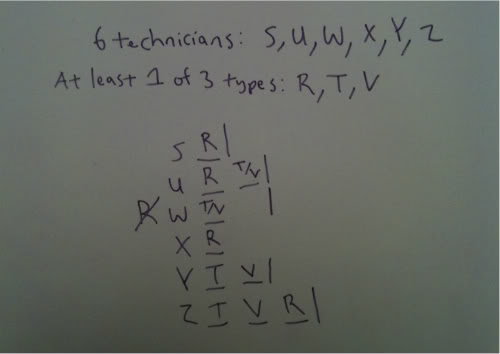 6 technicians: S, U, W, X, Y, Z
At least 1 of 3 types: R, T, V
S R|
U R T/V|
R W T/V |
X R
Y T V|
Z T V R|